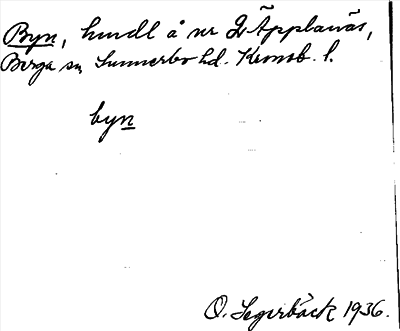 Byn, hmdl å nr 2 Äpplanäs,
Berga sn Sunnerbo hd. Kronob. l.
byn
O. Segerbäck 1936.